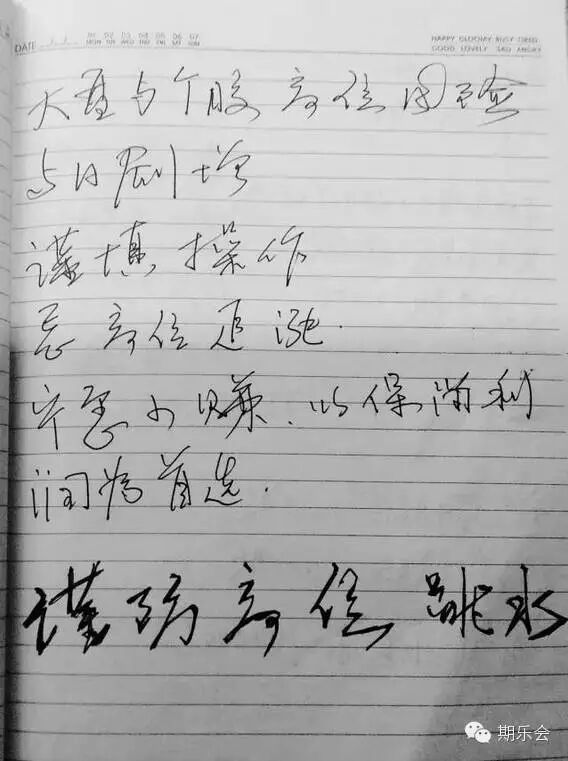 DATE
01 02 03 04 05 06 07
MON TUE WED THU FRI SAT SUN
HAPPY GLOOMY BUSY TIRED
GOOD LOVELY SAD ANGRY
大盘与个股高位风险
与日剧增
谨慎操作
忌高位追涨.
宁愿少赚.以保尚利
润为首选.
谨防高位跳水
期乐会